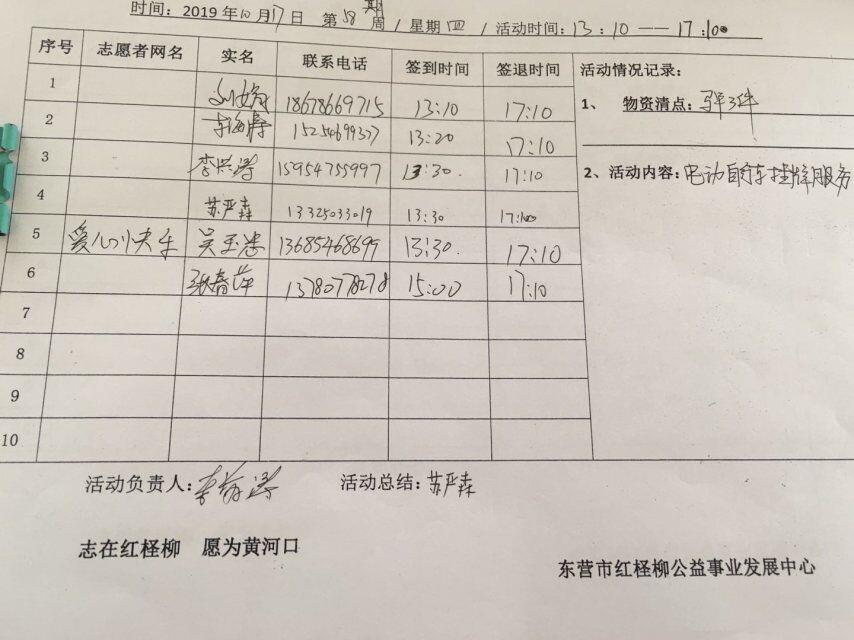 时间: 2019 年10月17日 第58期周 / 星期四 / 活动时间: 13:10 — 17:10
序号 志愿者网名 实名 联系电话 签到时间 签退时间 活动情况记录:
1 18678669715 13:10 17:10 1、 物资清点:
2 15254699377 13:20 17:10
3 李洪涛 15954755997 13:30. 17:10 2、活动内容: 电动自行车挂牌服务
4 苏严森 13325033019 13:30 17:10
5 爱心小夫子 吴玉忠 13685468699 13:30. 17:10
6 张春萍 13780778278 15:00 17:10
7
8
9
10
活动负责人: 活动总结: 苏严森
志在红柽柳 愿为黄河口
东营市红柽柳公益事业发展中心